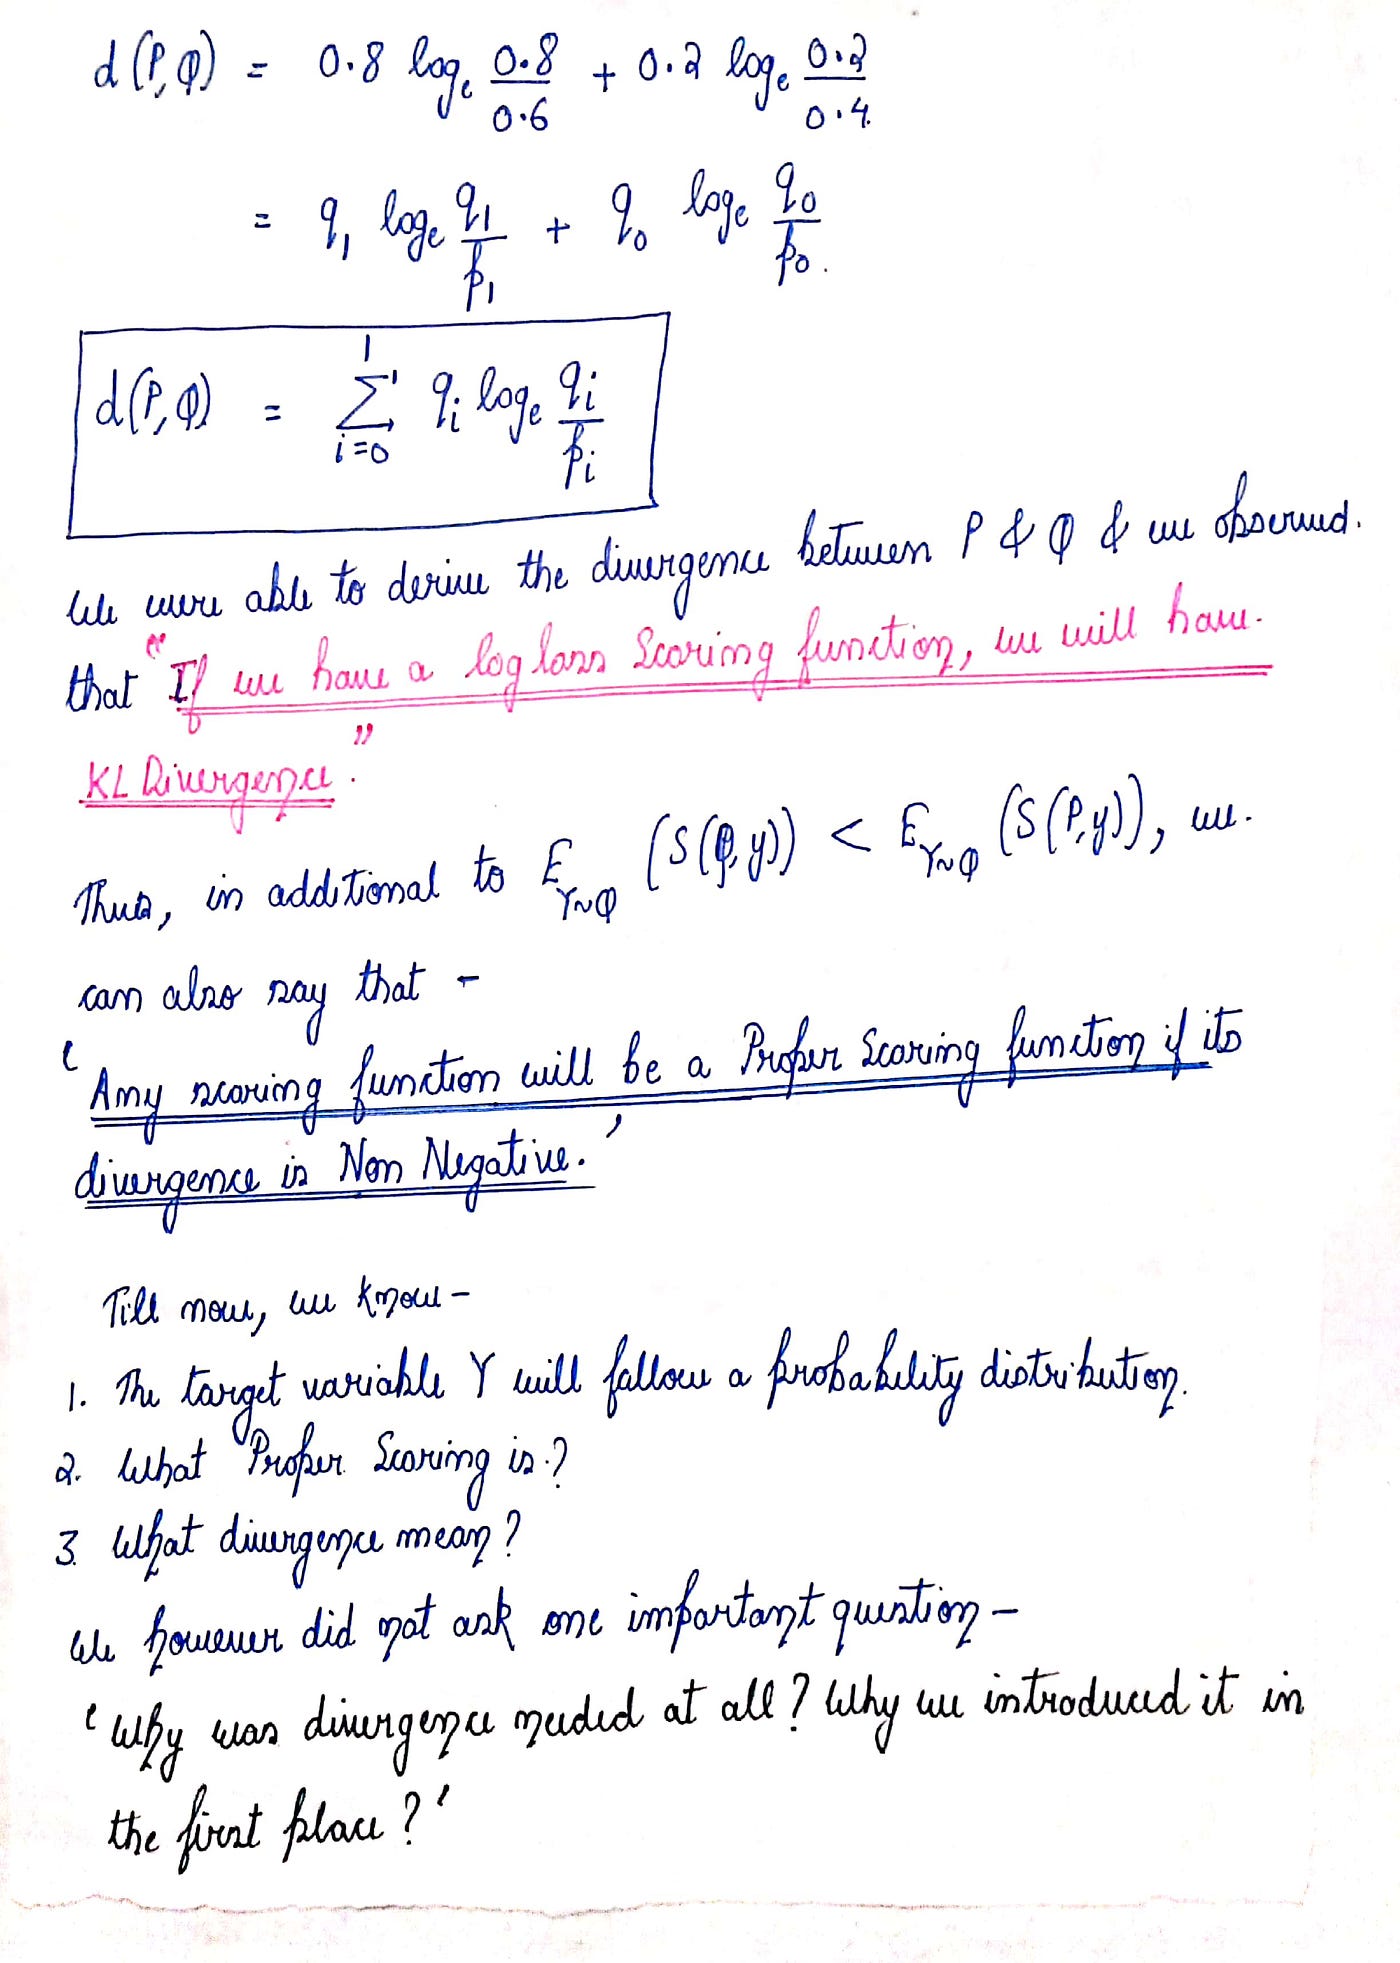 d(P,Q) = 0.8 logₑ 0.8/0.6 + 0.2 logₑ 0.2/0.4
= q₁ logₑ q₁/p₁ + q₀ logₑ q₀/p₀.
d(P,Q) = Σ_{i=0}^{1} qᵢ logₑ qᵢ/pᵢ
We were able to derive the divergence between P & Q & we observed.
that "If we have a log loss Scoring function, we will have.
KL Divergence."
Thus, in additional to E_{Y~Q} (S(Q,y)) < E_{Y~Q} (S(P,y)), we.
can also say that -
'Any scoring function will be a Proper Scoring function if its
divergence is Non Negative.'
Till now, we know -
1. The target variable Y will follow a probability distribution.
2. What Proper Scoring is?
3. What divergence mean?
We however did not ask one important question -
'Why was divergence needed at all? Why we introduced it in
the first place?'